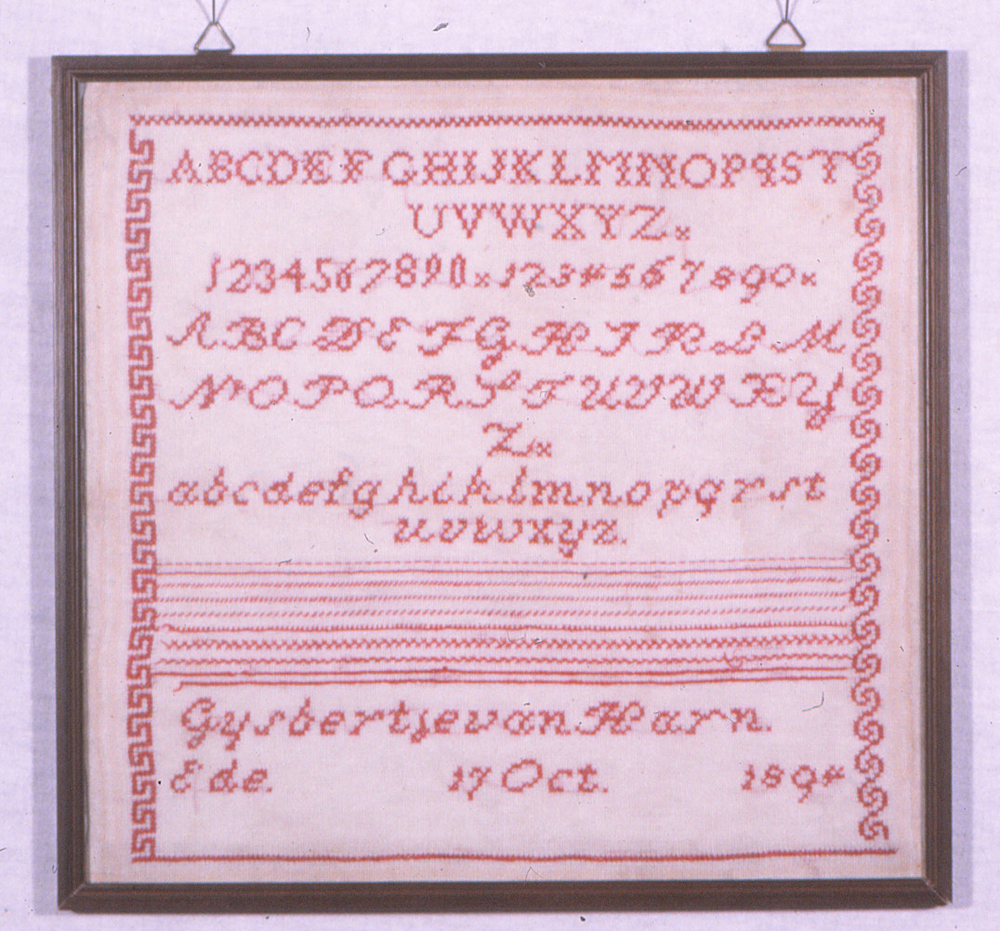 ABCDEFGHIJKLMNOPQST
UVWXYZ×
1234567890×1234567890×
ABCDEFGHIKLM
NOPQRSTUVWXY
Z×
abcdefghiklmnopqrst
uvwxyz.
Gysbertje van Harn.
Ede. 17 Oct. 1894